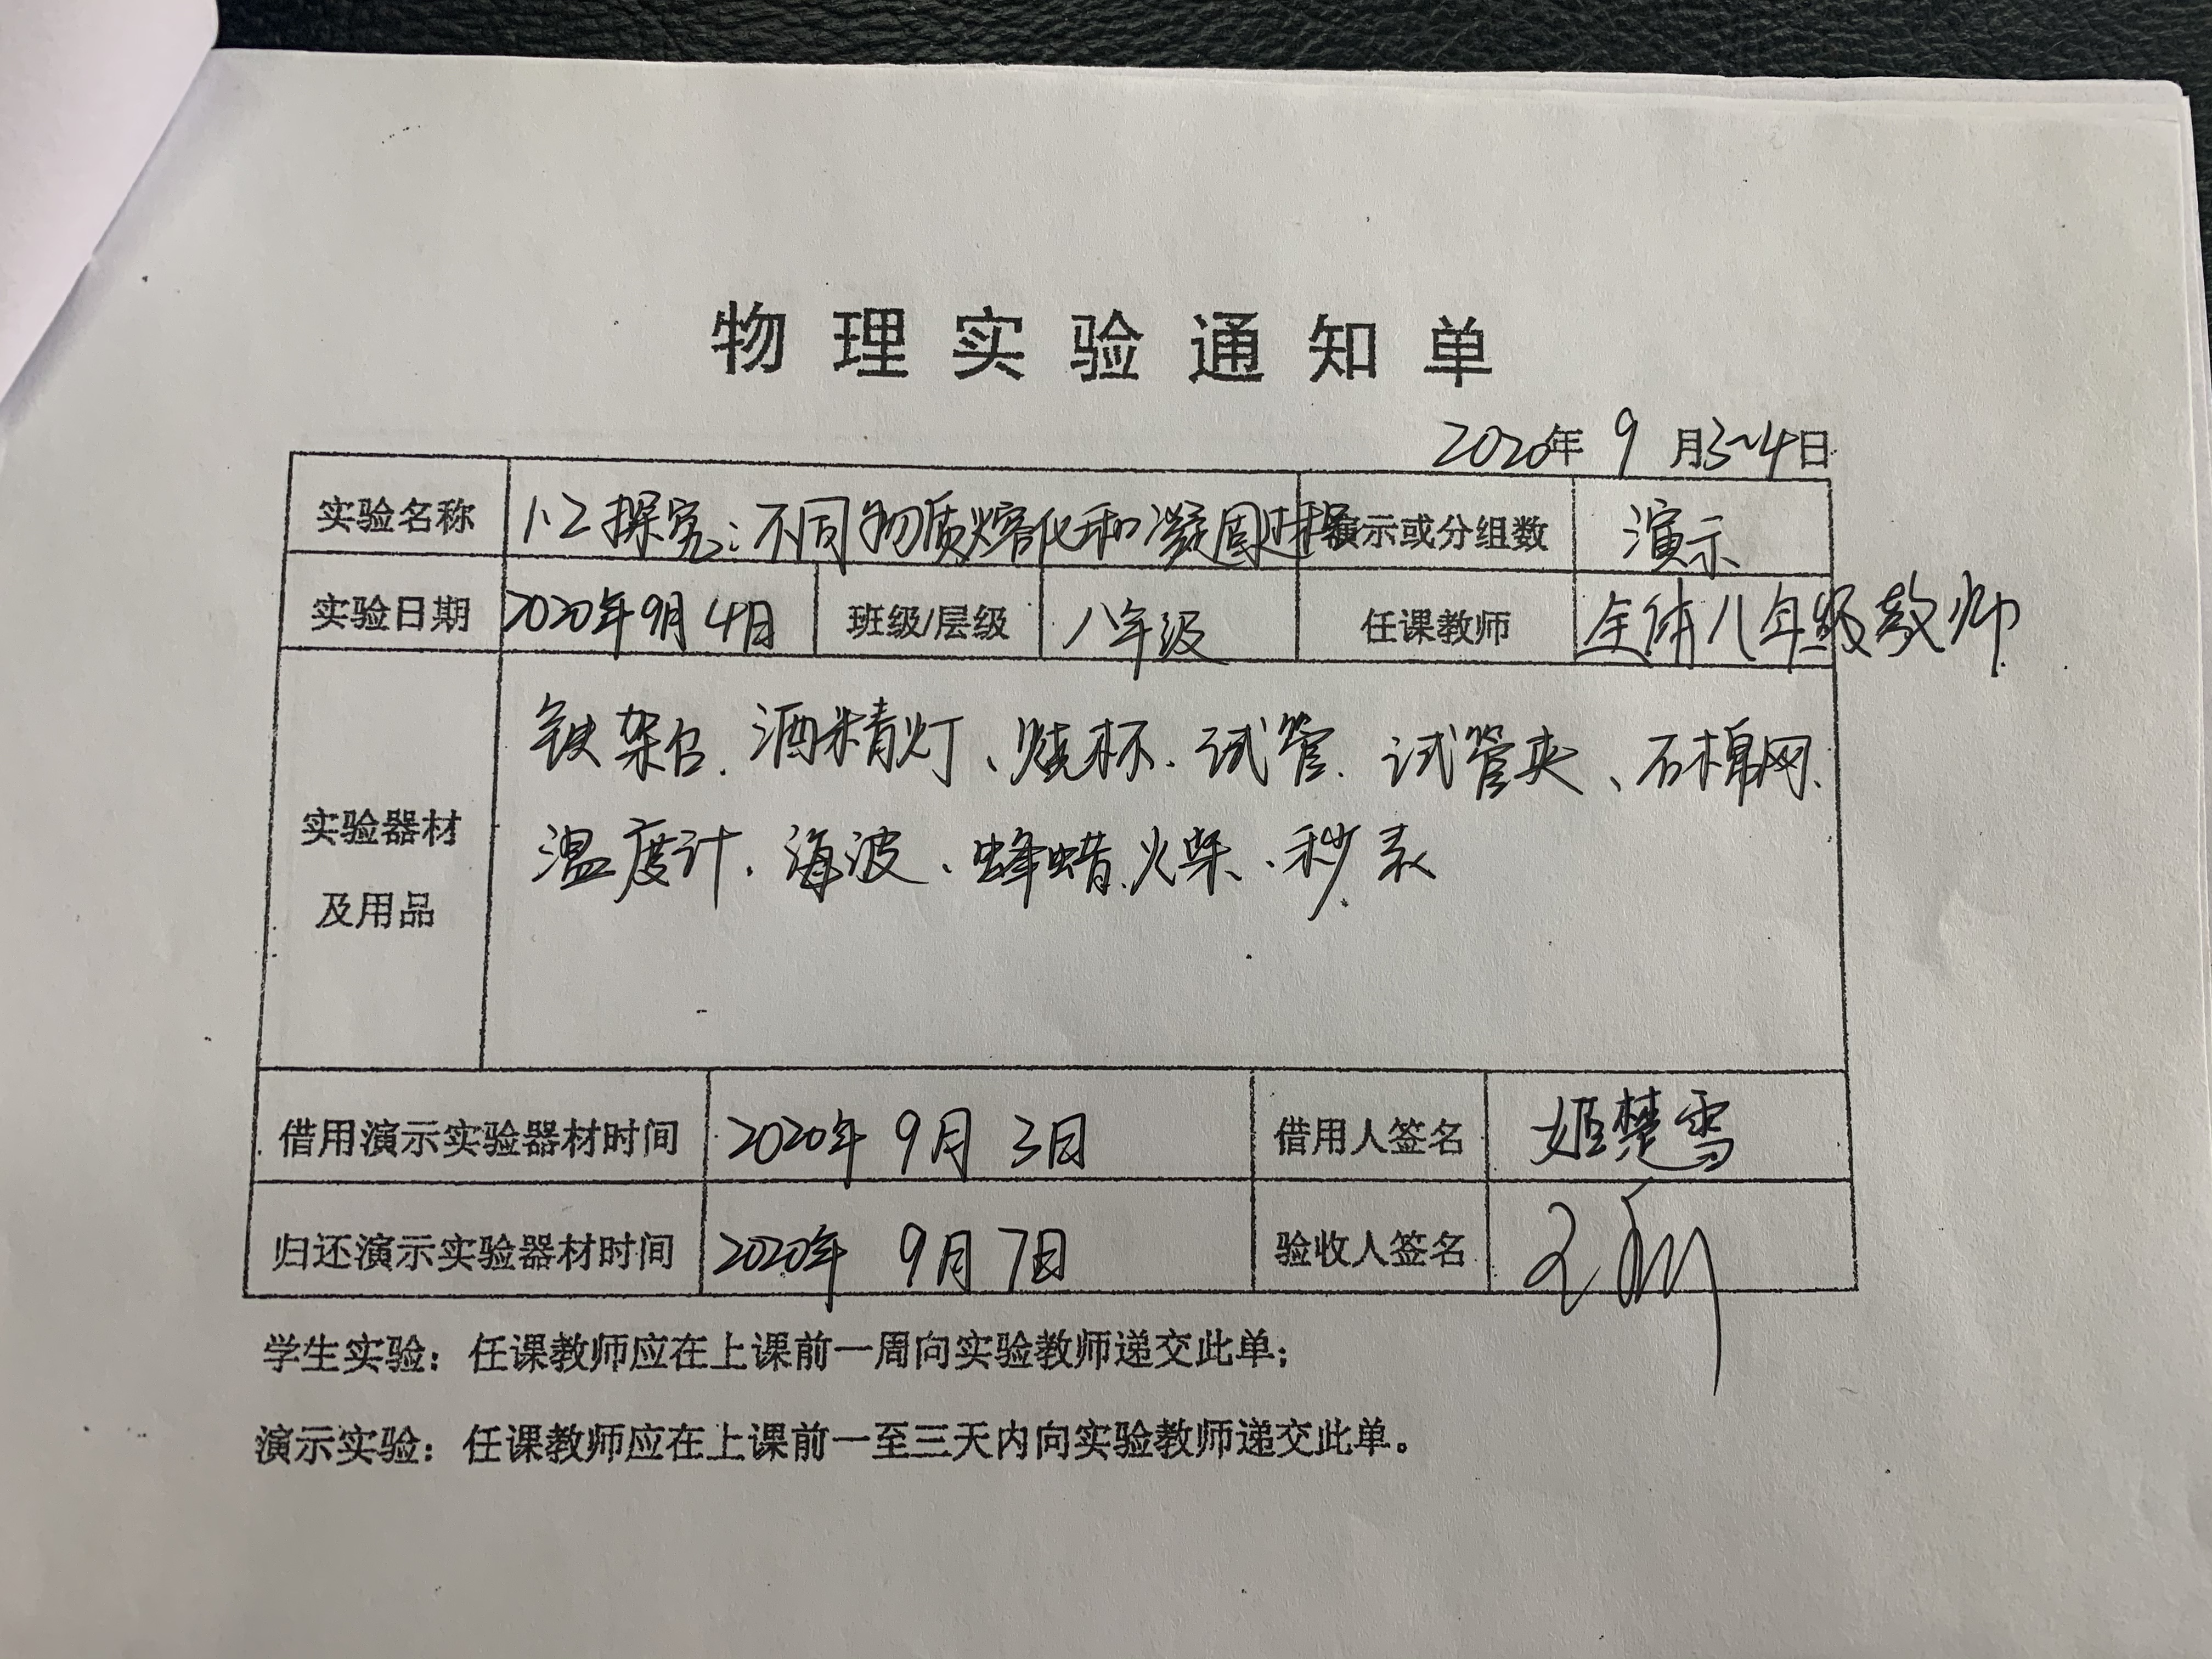 物理实验通知单
2020年 9 月3~4日
实验名称 1.2探究:不同物质熔化和凝固过程 演示或分组数 演示
实验日期 2020年9月4日 班级/层级 八年级 任课教师 全体八年级教师
铁架台、酒精灯、烧杯、试管、试管夹、石棉网、
实验器材 温度计、海波、蜂蜡、火柴、秒表
及用品
借用演示实验器材时间 2020年 9月 3日 借用人签名 姬楚雪
归还演示实验器材时间 2020年 9月 7日 验收人签名
学生实验：任课教师应在上课前一周向实验教师递交此单；
演示实验：任课教师应在上课前一至三天内向实验教师递交此单。